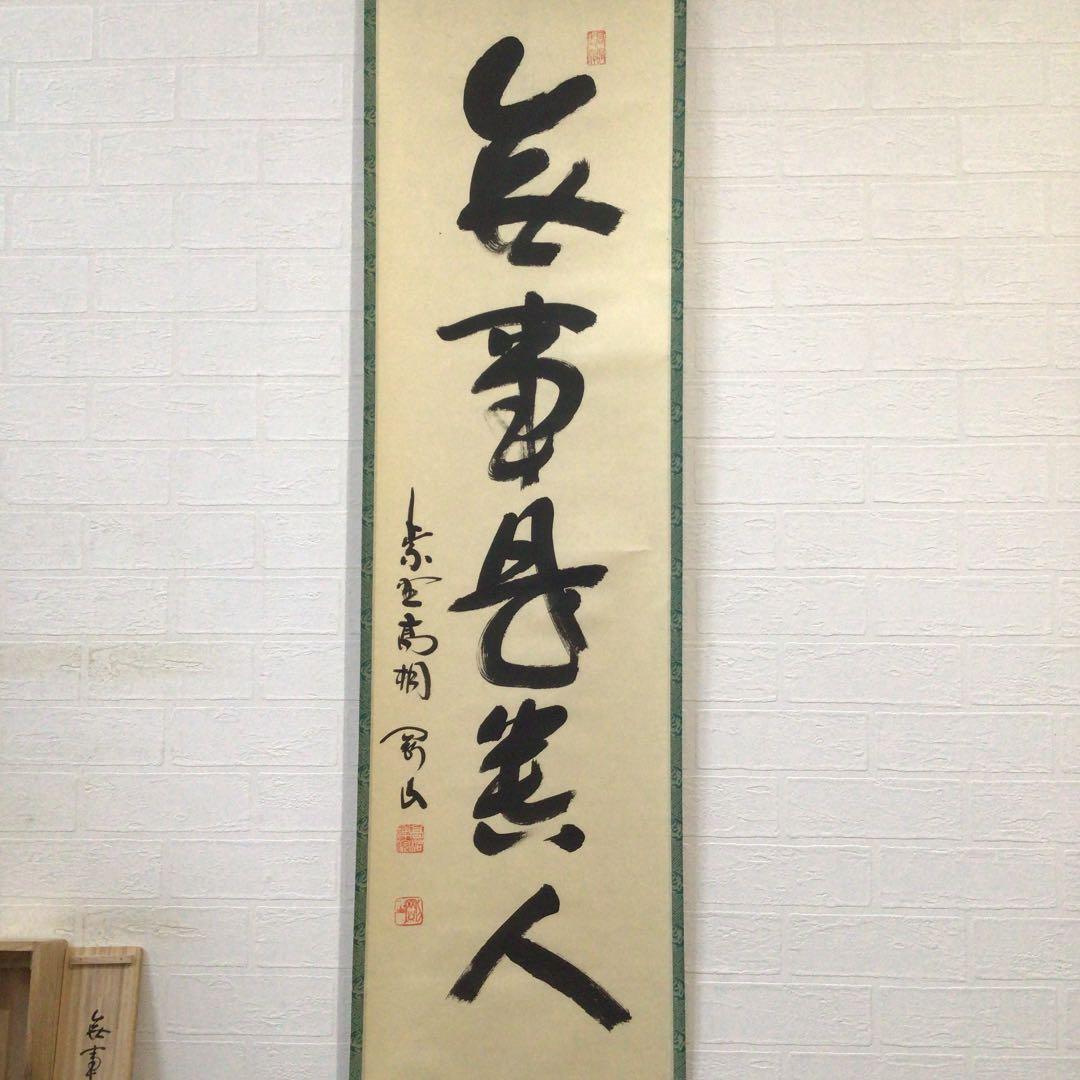 無事是貴人
紫野高桐 剛山
無事